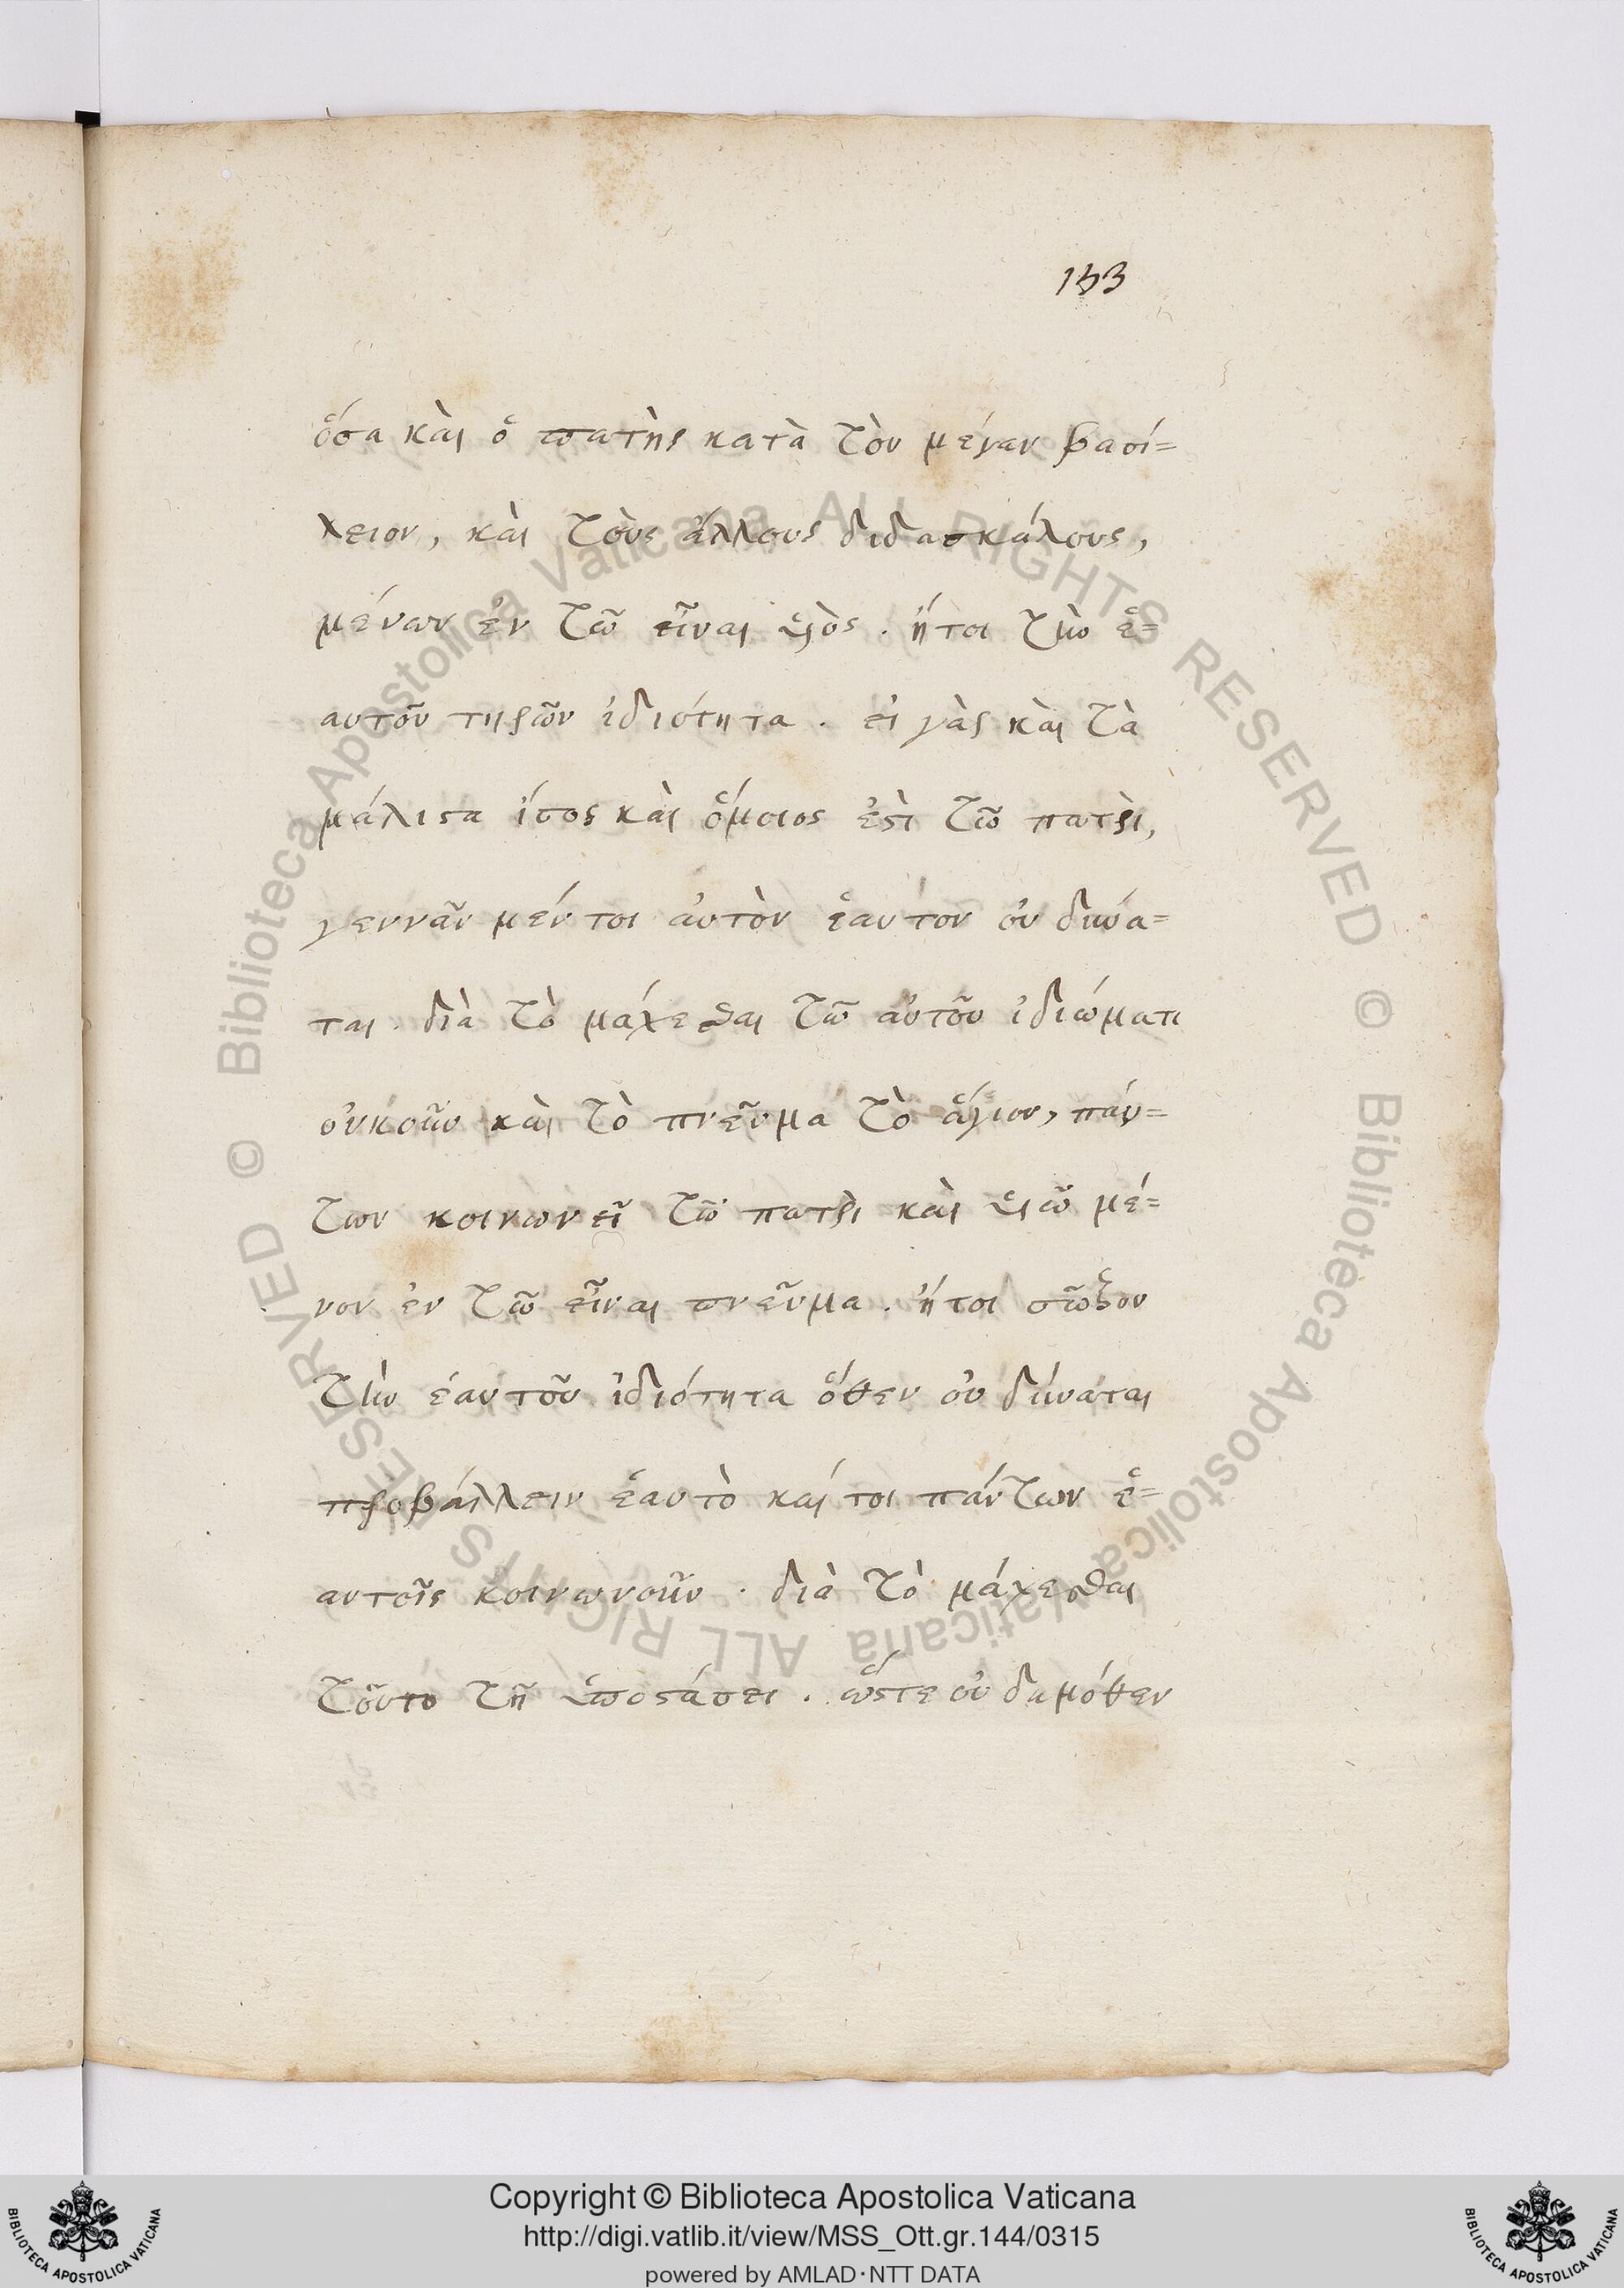 153
ὅσα καὶ ὁ πατὴρ κατὰ τὸν μέγαν βασί=
λειον, καὶ τοὺς ἄλλους διδασκάλους,
μένων ἐν τῶ εἶναι υἱὸς . ἤτοι τὴν ἑ=
αυτοῦ τηρῶν ἰδιότητα . εἰ γὰρ καὶ τὰ
μάλιστα ἴσος καὶ ὅμοιος ἐστὶ τῶ πατρὶ,
γεννᾶν μέν τοι αὐτὸν ἑαυτὸν οὐ δύνα=
ται . διὰ τὸ μάχεσθαι τῶ αὐτοῦ ἰδιώματι
οὐκοῦν καὶ τὸ πνεῦμα τὸ ἅγιον, πάν=
των κοινωνεῖ τῶ πατρὶ καὶ υἱῶ μέ=
νον ἐν τῶ εἶναι πνεῦμα . ἤτοι σῶζον
τὴν ἑαυτοῦ ἰδιότητα ὅθεν οὐ δύναται
προβάλλειν ἑαυτὸ καί τοι πάντων ἑ=
αυτοῖς κοινωνοῦν . διὰ τὸ μάχεσθαι
τοῦτο τῆ ὑποστάσει . ὥστε οὐ δαμόθεν
Copyright © Biblioteca Apostolica Vaticana
http://digi.vatlib.it/view/MSS_Ott.gr.144/0315
powered by AMLAD·NTT DATA
BIBLIOTECA APOSTOLICA VATICANA
BIBLIOTECA APOSTOLICA VATICANA
© Biblioteca Apostolica Vaticana ALL RIGHTS RESERVED © Biblioteca Apostolica Vaticana ALL RIGHTS RESERVED